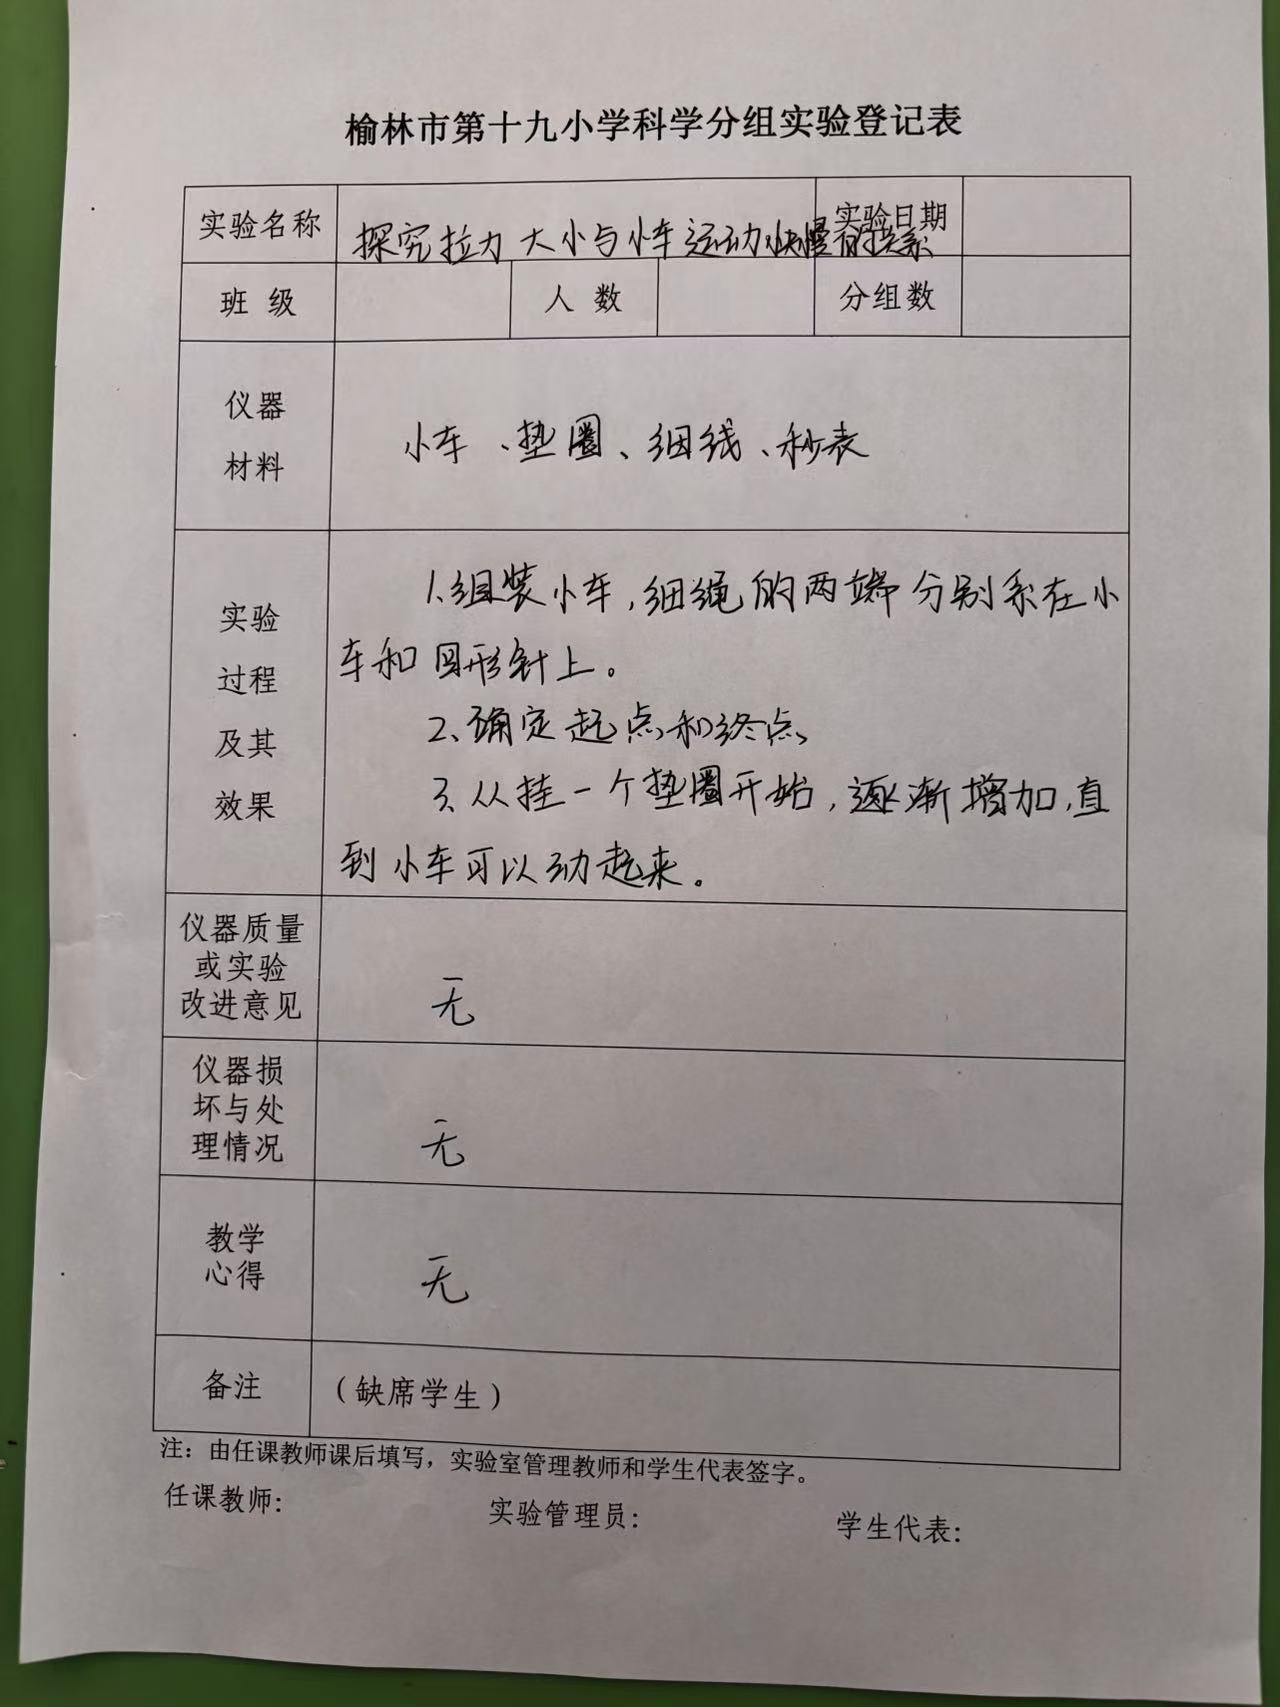 榆林市第十九小学科学分组实验登记表
实验名称 探究拉力大小与小车运动快慢的关系 实验日期
班 级 人 数 分组数
仪器
材料
小车、垫圈、细线、秒表
实验
过程
及其
效果
1.组装小车,细绳的两端分别系在小
车和回形针上。
2、确定起点和终点、
3、从挂一个垫圈开始,逐渐增加,直
到小车可以动起来。
仪器质量
或实验
改进意见
无
仪器损
坏与处
理情况
无
教学
心得
无
备注 (缺席学生)
注:由任课教师课后填写,实验室管理教师和学生代表签字。
任课教师: 实验管理员: 学生代表: